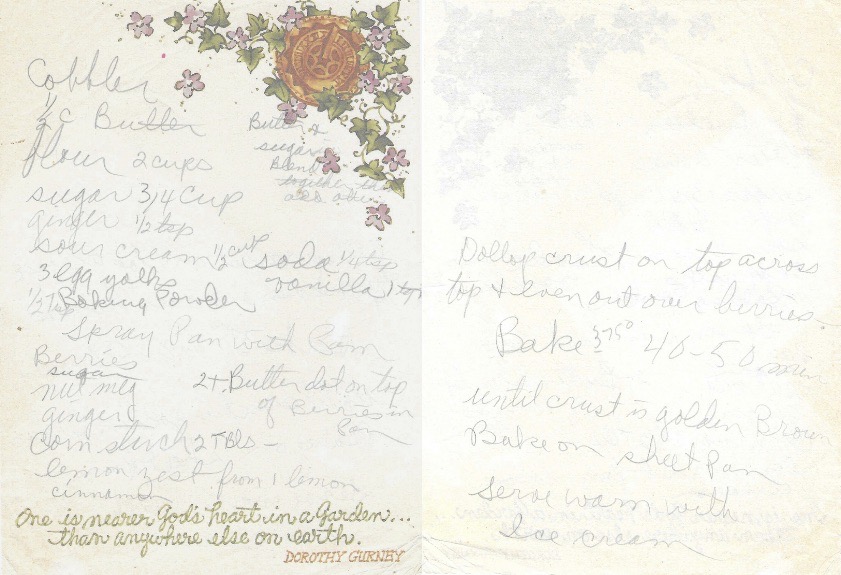 Cobbler
1/2 C Butter
flour 2 cups
sugar 3/4 cup
ginger 1/2 tsp
sour cream 1/2 cup
3 egg yolks
Baking Powder
Butter &
sugar
Blend
together
add
soda 1/4 tsp
vanilla 1 tsp
Spray Pan with Pam
Berries
sugar
nutmeg
ginger
corn starch 2 TBLS -
lemon zest from 1 lemon
cinnamon
2 t. Butter dot on top
of Berries in
Pan
One is nearer God's heart in a Garden...
than anywhere else on earth.
DOROTHY GURNEY
Dollop crust on top across
top & even out over berries
Bake 375° 40-50 min
until crust is golden Brown
Bake on sheet Pan
Serve warm with
Ice cream